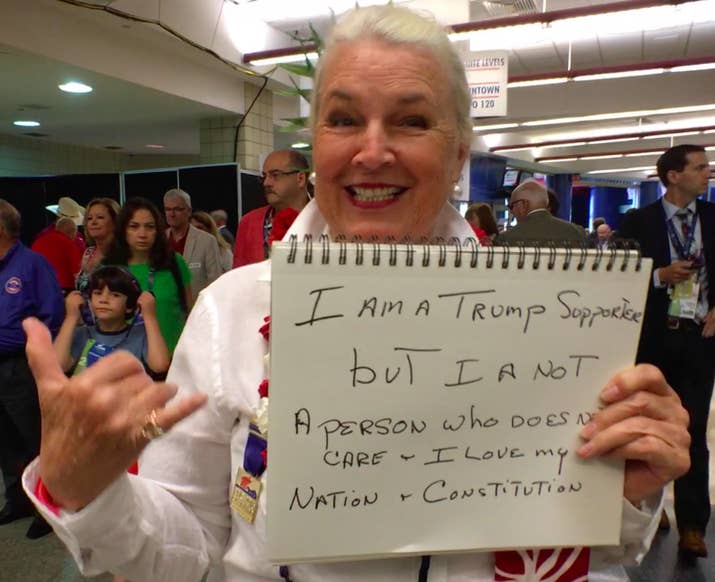 SUITE LEVELS
NTOWN
O 120
I AM A TRUMP SUPPORTER
but I A NOT
A PERSON who DOES N
CARE + I LOVE my
NATION + CONSTITUTION